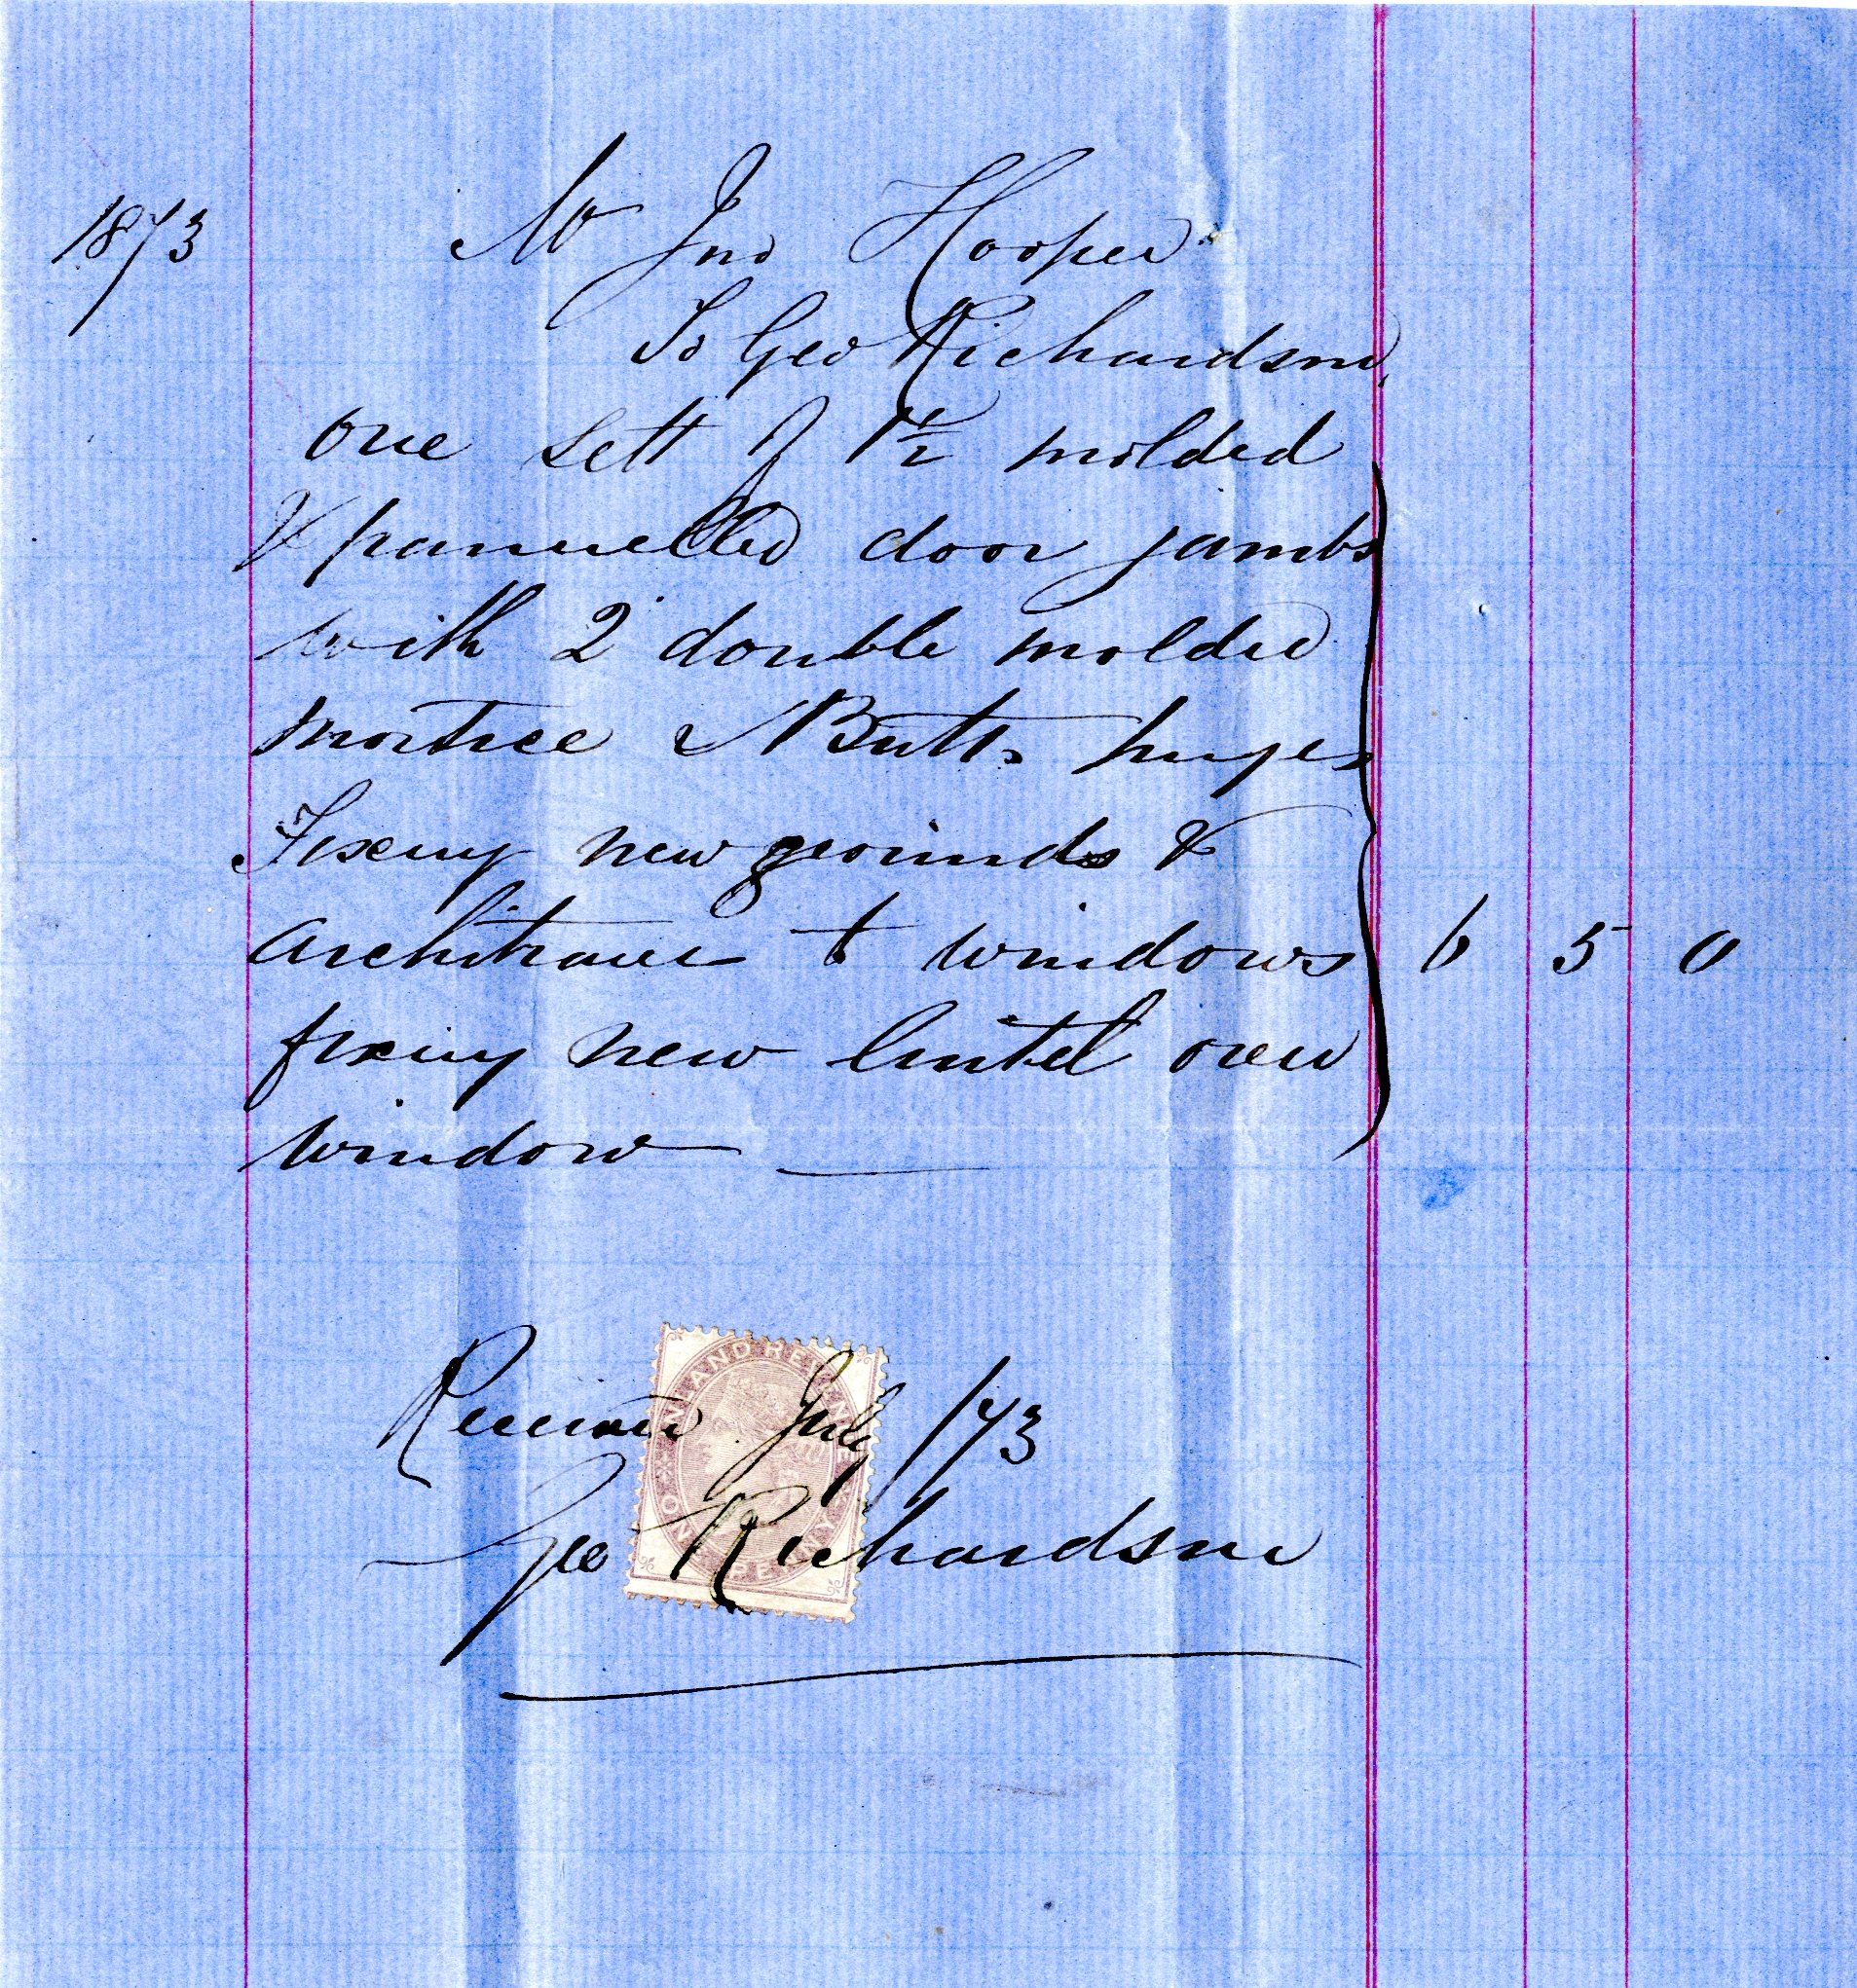 1873 Mr Jno Hooper
To Geo Richardson
one sett of 1 1/2 molded
& pannelled door jambs
with 2" double molded
mortice & Butts hinges
Fixeing new grounds &
architrave to windows 6 5 0
fixing new lintel over
window
INLAND REVENUE
ONE PENNY
Received July /73
Geo Richardson